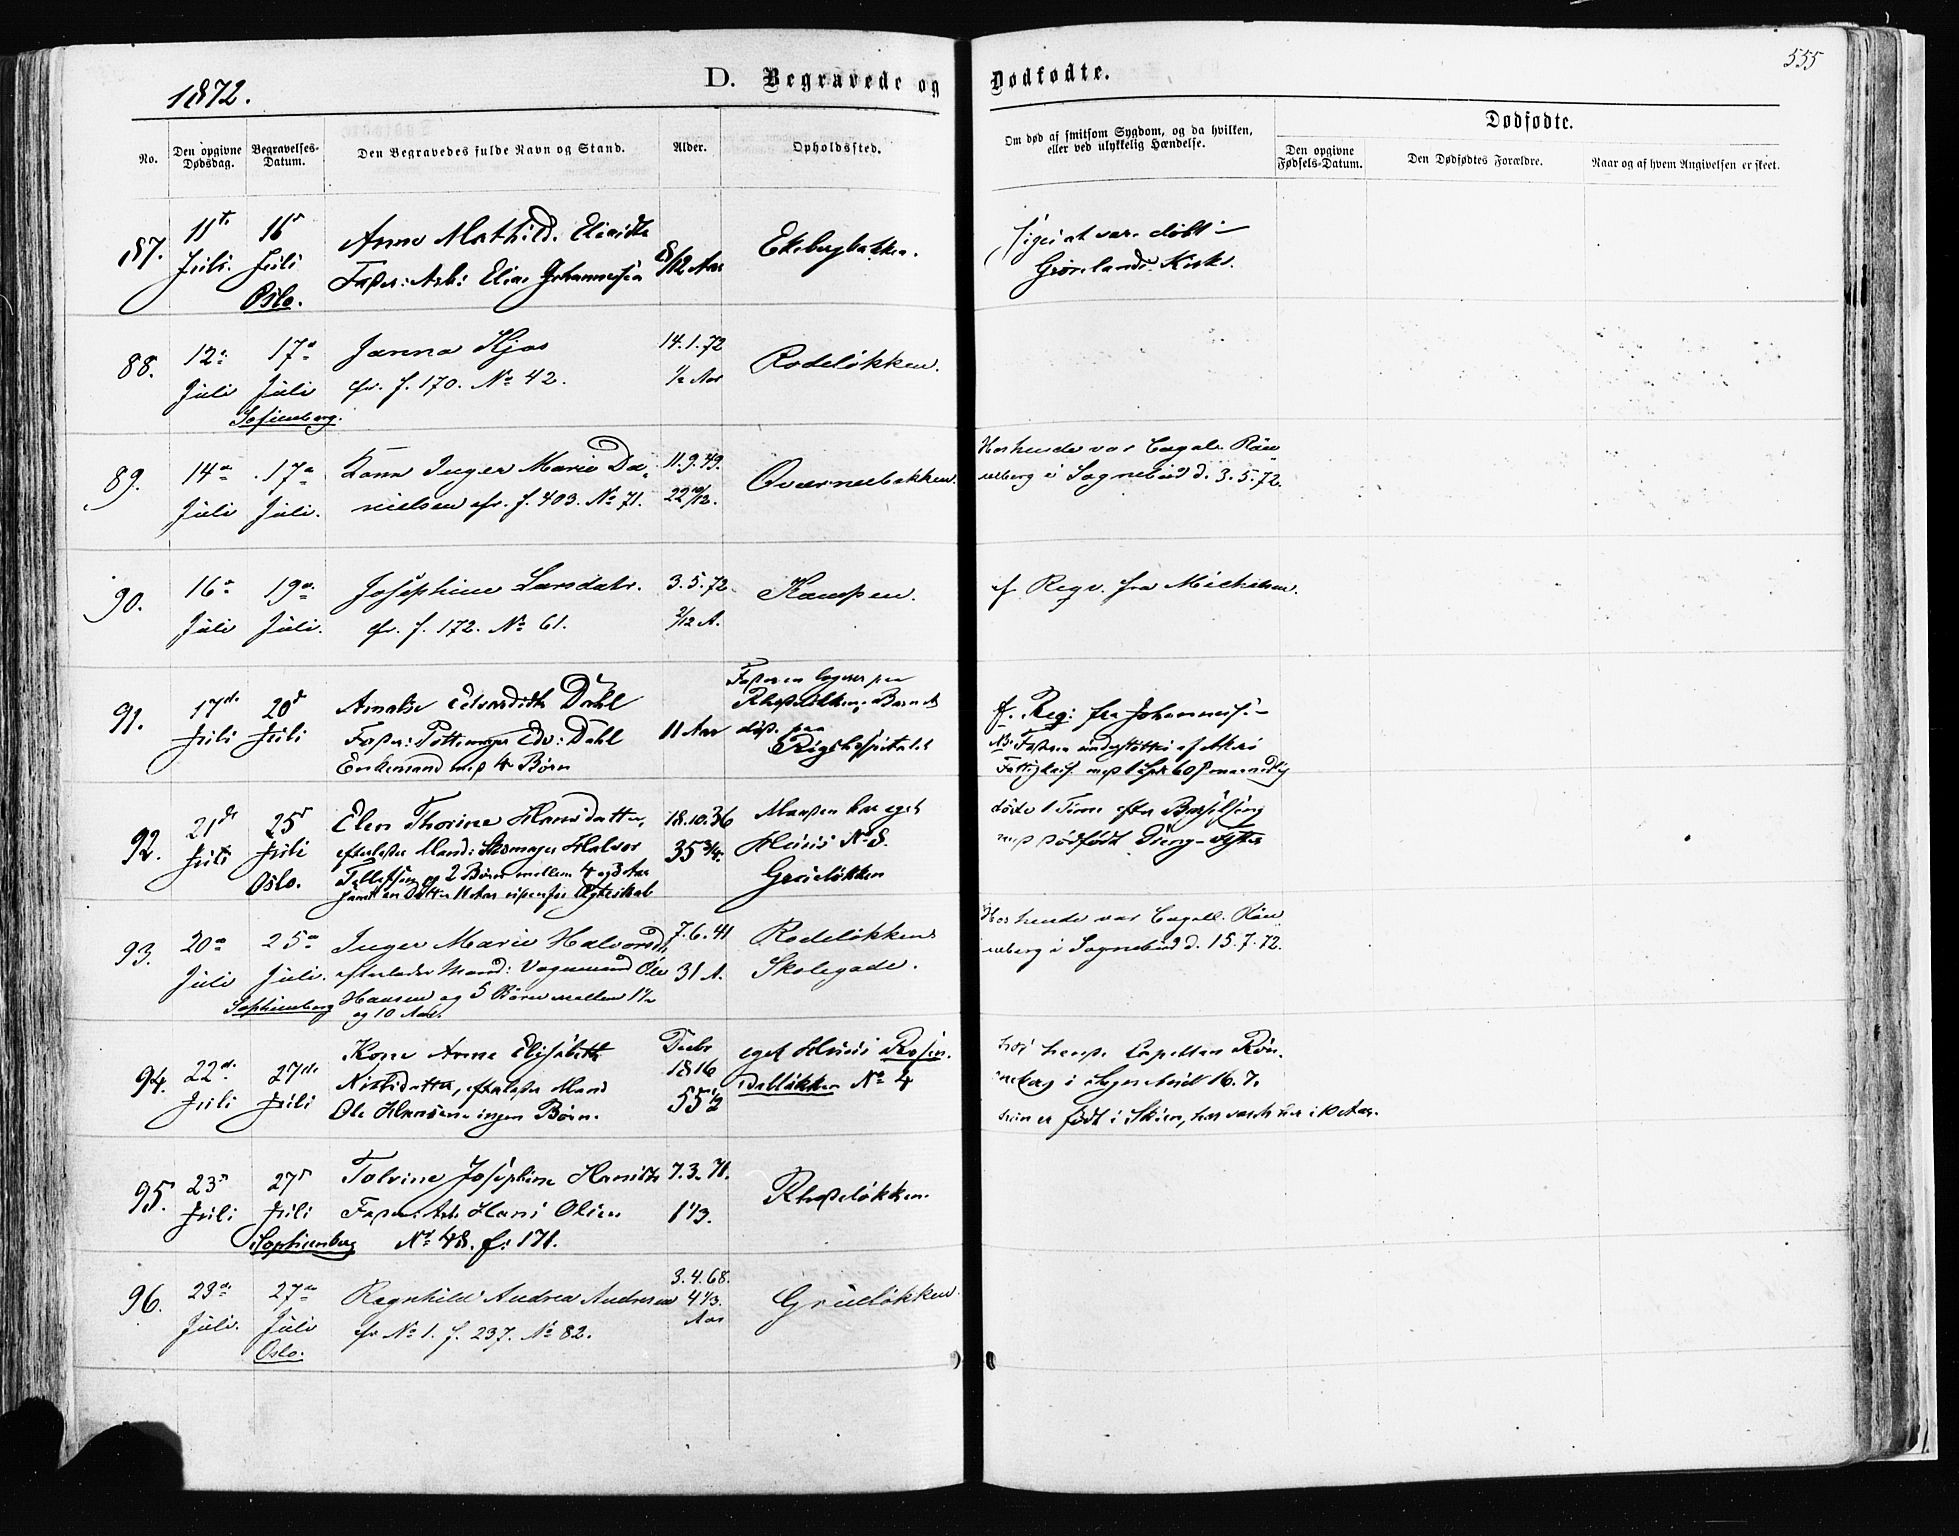 555
1872.
D. Begravede og Dødfødte.
No.
Den opgivne Dødsdag.
Begravelses-Datum.
Den Begravedes fulde Navn og Stand.
Alder.
Opholdssted.
Om død af smitsom Sygdom, og da hvilken, eller ved ulykkelig Hændelse.
Dødfødte.
Den opgivne Fødsels-Datum.
Den Dødfødtes Forældre.
Naar og af hvem Angivelsen er skeet.
187.
11te Juli.
16d Juli
Oslo.
Anne Mathild. Eliasdtr
Fader: Arb: Elias Johannesen
8/12 Aar
Ekebergbakken.
siges at være døbt i
Grønlands Kirke.
88.
12te Juli
17de Juli
Sofienberg.
Janna Kjos
cfr. f. 170. No 42.
14.1.72
1/2 Aar
Rodeløkken.
89.
14de Juli
17de Juli.
Kone Inger Marie Da-
nielsen cfr. f. 403. No 71.
11.9.49.
22 10/12.
Qværnerbakken.
Hos hende var Capell. Røn
neberg i Sognebud d. 3.5.72.
90.
16de Juli
19de Juli.
Josephine Larsdatr.
cfr. f. 172. No 61.
3.5.72.
2/12 A.
Kampen.
f. Regn. fra Michelsen.
91.
17de Juli
20d Juli
Amalie Edvardidth Dahl
Fader: Pottemager Edv: Dahl
Enkemand med 4 Børn
11 Aar
Faderen logerer paa
Rhodeløkken, Barnet
døde paa
Rigshospitalet
f. Reg: fra Johannes:
NB. Faderen understøttes af Akers
Fattigkas. med 1 Spd 60 s maanedlig
92.
21de Juli
25d Juli
Oslo.
Elen Thorine Hansdatter,
efterlader Mand: Skomager Halvor
Tellefsen og 2 Børn mellem 4 og 3 Aar
samt en Datter 11 Aar udenfor Ægteskab
18.10.36
35 3/4.
Manden har eget
Huus No 8.
Grüneløkken
døde 1 Time efter Barselseng
med dødfødt Dreng-
93.
20de Juli
25de Juli.
Sophienberg
Inger Marie Halvorsdt,
efterlader Mand: Vognmand Ole
Hansen og 5 Børn mellem 1 1/2
og 10 Aar.
7.6.41
31 A.
Rodeløkkens
Skolegade.
Hos hende var Capell. Røn
neberg i Sognebud d. 15.7.72.
94.
22de Juli
27de Juli
Kone Anne Elisabeth
Nielsdatter, efterlader Mand
Ole Hansen ingen Børn.
Decbr
1816
55 1/2
eget Huus Rosen-
dalløkken No 4
hos hende Capellan Røn-
neberg i Sognebud 16.7.
hun er født i Skien, har været her i 10 Aar.
95.
23d Juli
27d Juli
Sophienberg
Tolvine Josephine Hansdtr
Fader: Arb. Hans Olsen
No 48. f: 171.
7.3.71.
1 1/3.
Rhodeløkken.
96.
23de Juli.
27de Juli
Oslo.
Ragnhild Andrea Andresen
cfr No 1. f. 237. No 82.
3.4.68.
4 1/3.
Aar
Grüneløkken.